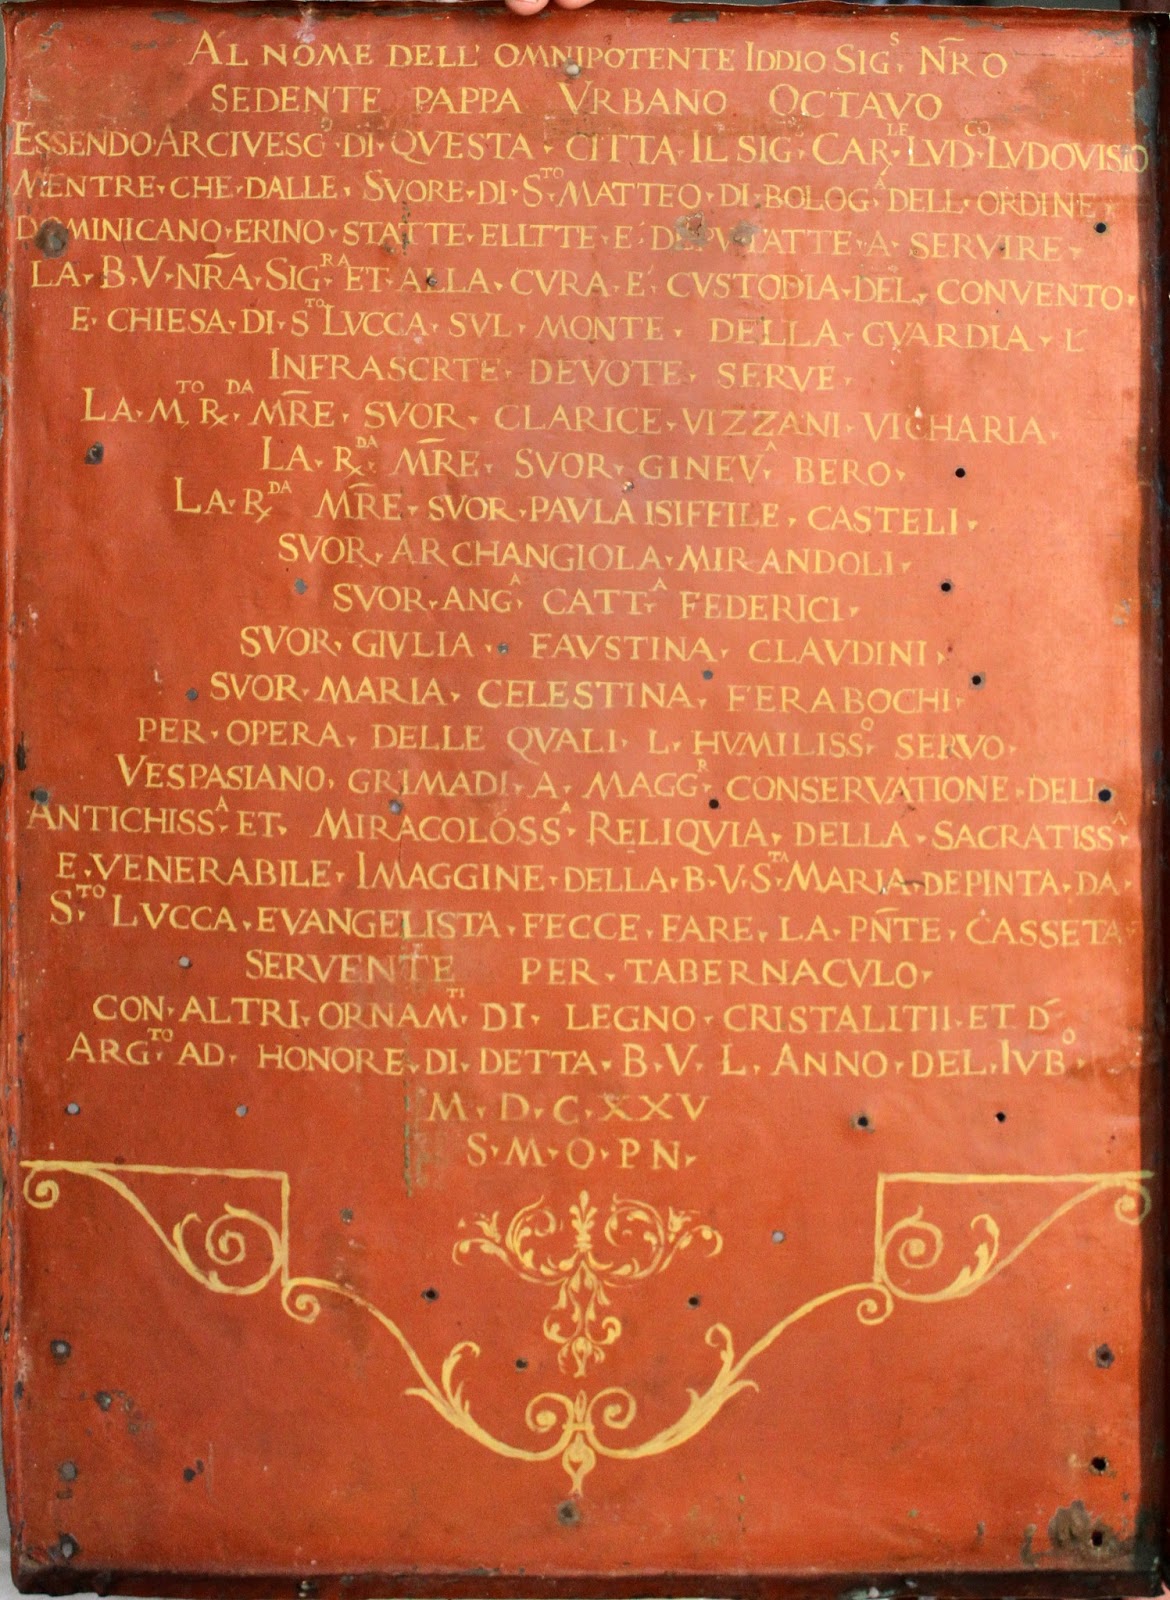 AL NOME DELL' OMNIPOTENTE IDDIO SIG.S NRO
SEDENTE PAPPA VRBANO OCTAVO
ESSENDO·ARCIVESCO·DI·QVESTA·CITTA·IL SIG.CAR.LE LVD.CO LVDOVISIO
MENTRE·CHE·DALLE·SVORE·DI·S.TO MATTEO·DI·BOLOG.A DELL·ORDINE
DOMINICANO·ERINO·STATTE·ELITTE·E·DEPVTATTE·A·SERVIRE·
LA·B·V·NRA·SIG.RA ET·ALLA·CVRA·E·CVSTODIA·DEL·CONVENTO·
E·CHIESA·DI·S.TO LVCCA·SVL·MONTE·DELLA·GVARDIA·L'
INFRASCRTE·DEVOTE·SERVE·
LA·M.TO R.DA MRE·SVOR·CLARICE·VIZZANI·VICHARIA·
LA·R.DA MRE·SVOR·GINEV.A BERO·
LA·R.DA MRE·SVOR·PAVLA ISIFFILE·CASTELI·
SVOR·ARCHANGIOLA·MIRANDOLI·
SVOR·ANG.A CATT.A FEDERICI·
SVOR·GIVLIA·FAVSTINA·CLAVDINI·
SVOR·MARIA·CELESTINA·FERABOCHI·
PER·OPERA·DELLE QVALI·L·HVMILISS.O SERVO·
VESPASIANO·GRIMADI·A·MAGG.R CONSERVATIONE·DELL
ANTICHISS.A ET·MIRACOLOSS.A RELIQVIA·DELLA·SACRATISS.A
E·VENERABILE·IMAGGINE·DELLA·B·V·S.TA MARIA·DEPINTA·DA·
S.TO LVCCA·EVANGELISTA·FECCE·FARE·LA·PÑTE·CASSETA
SERVENTE PER·TABERNACVLO·
CON·ALTRI·ORNAM.TI DI·LEGNO·CRISTALITII·ET D'
ARG.TO AD·HONORE·DI·DETTA·B·V·L·ANNO·DEL·IVB.O
M·D·C·XXV
S·M·O·P N·